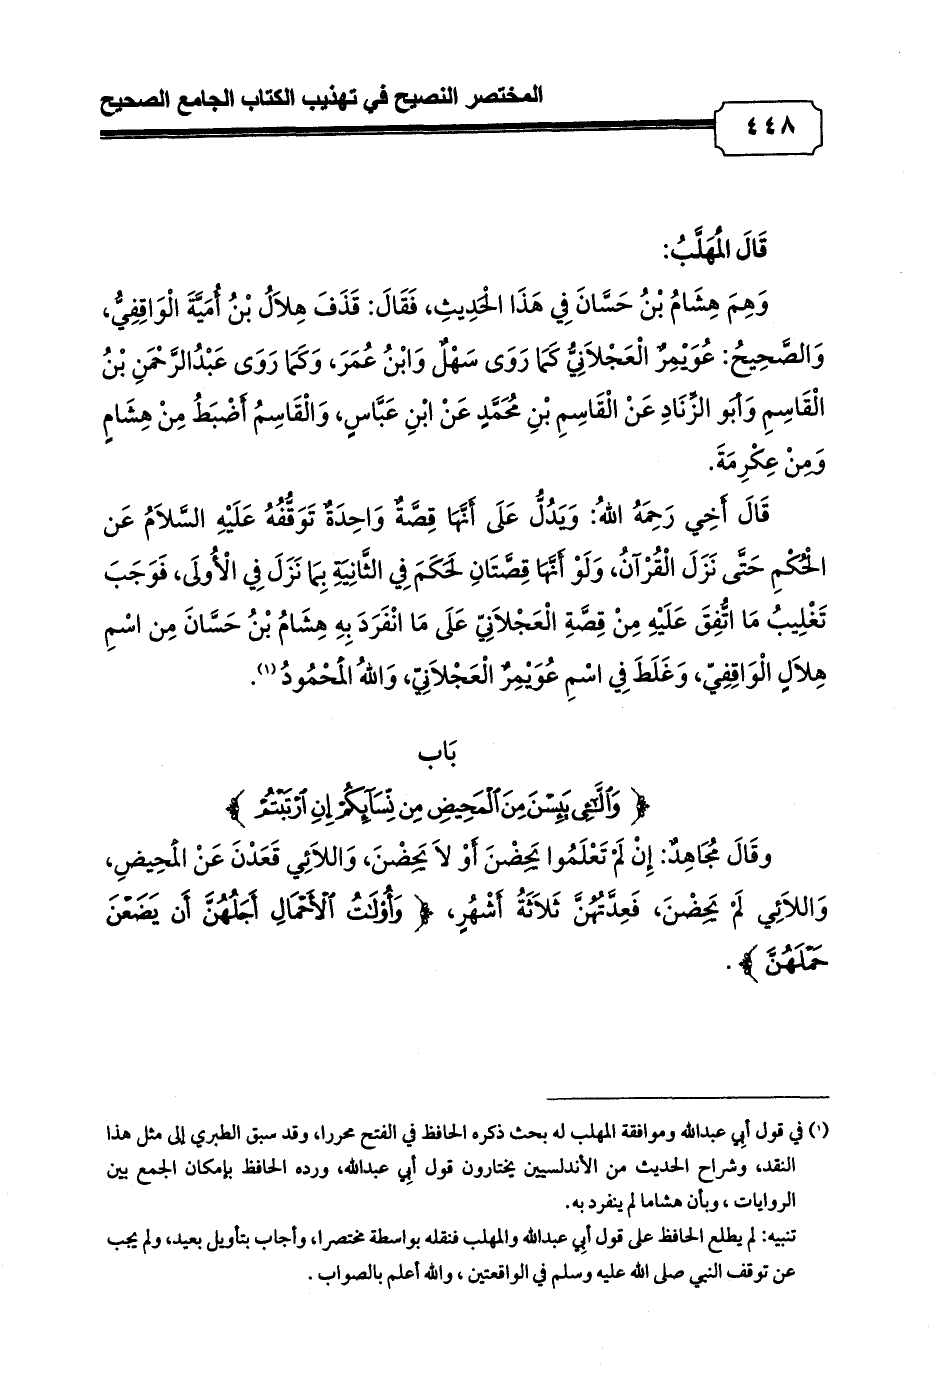 المختصر النصيح في تهذيب الكتاب الجامع الصحيح
٤٤٨
قَالَ الْمُهَلَّبُ:
وَهِمَ هِشَامُ بْنُ حَسَّانَ فِي هَذَا الْحَدِيثِ، فَقَالَ: قَذَفَ هِلاَلُ بْنُ أُمَيَّةَ الْوَاقِفِيُّ،
وَالصَّحِيحُ: عُوَيْمِرٌ الْعَجْلاَنِيُّ كَمَا رَوَى سَهْلٌ وَابْنُ عُمَرَ، وَكَمَا رَوَى عَبْدُالرَّحْمَنِ بْنُ
الْقَاسِمِ وَأَبو الزِّنَادِ عَنْ الْقَاسِمِ بْنِ مُحَمَّدٍ عَنْ ابْنِ عَبَّاسٍ، وَالْقَاسِمُ أَضْبَطُ مِنْ هِشَامٍ
وَمِنْ عِكْرِمَةَ.
قَالَ أَخِي رَحِمَهُ اللهُ: وَيَدُلُّ عَلَى أَنَّهَا قِصَّةٌ وَاحِدَةٌ تَوَقُّفُهُ عَلَيْهِ السَّلاَمُ عَن
الْحُكْمِ حَتَّى نَزَلَ الْقُرْآنُ، وَلَوْ أَنَّهَا قِصَّتَانِ لَحَكَمَ فِي الثَّانِيَةِ بِمَا نَزَلَ فِي الْأُولَى، فَوَجَبَ
تَغْلِيبُ مَا اتُّفِقَ عَلَيْهِ مِنْ قِصَّةِ الْعَجْلاَنِيّ عَلَى مَا انْفَرَدَ بِهِ هِشَامُ بْنُ حَسَّانَ مِن اسْمِ
هِلاَلٍ الْوَاقِفِيّ، وَغَلَطَ فِي اسْمِ عُوَيْمِرٌ الْعَجْلاَنِيّ، وَاللهُ الْمَحْمُودُ (١).
بَاب
﴿ وَٱلَّٰٓـِٔي يَئِسْنَ مِنَ ٱلْمَحِيضِ مِن نِّسَآئِكُمْ إِنِ ٱرْتَبْتُمْ ﴾
وقَالَ مُجَاهِدٌ: إِنْ لَمْ تَعْلَمُوا يَحِضْنَ أَوْ لاَ يَحِضْنَ، وَاللاَئِي قَعَدْنَ عَنْ الْمَحِيضِ،
وَاللاَئِي لَمْ يَحِضْنَ، فَعِدَّتُهُنَّ ثَلاَثَةُ أَشْهُرٍ، ﴿ وَأُوْلَٰتُ ٱلْأَحْمَالِ أَجَلُهُنَّ أَن يَضَعْنَ
حَمْلَهُنَّ ﴾ .
(١) في قول أبي عبدالله وموافقة المهلب له بحث ذكره الحافظ في الفتح محررا، وقد سبق الطبري إلى مثل هذا
النقد، وشراح الحديث من الأندلسيين يختارون قول أبي عبدالله، ورده الحافظ بإمكان الجمع بين
الروايات ، وبأن هشاما لم ينفرد به.
تنبيه: لم يطلع الحافظ على قول أبي عبدالله والمهلب فنقله بواسطة مختصرا، وأجاب بتأويل بعيد، ولم يجب
عن توقف النبي صلى الله عليه وسلم في الواقعتين ، والله أعلم بالصواب .